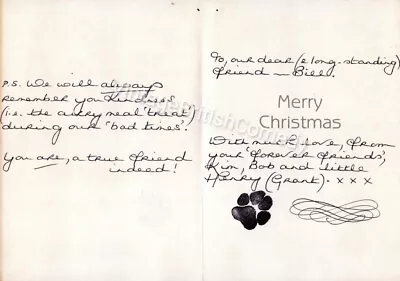 P.S. We will always
remember you Kindness
(i.e. the curry meal 'treat')
during our 'bad times'.
You are, a true friend
indeed!
To, our dear (& long-standing)
friend ~ Bill.
Merry
Christmas
With much love, from
your 'forever friends',
Kim, Bob and little
Henry (Grant) - x x x